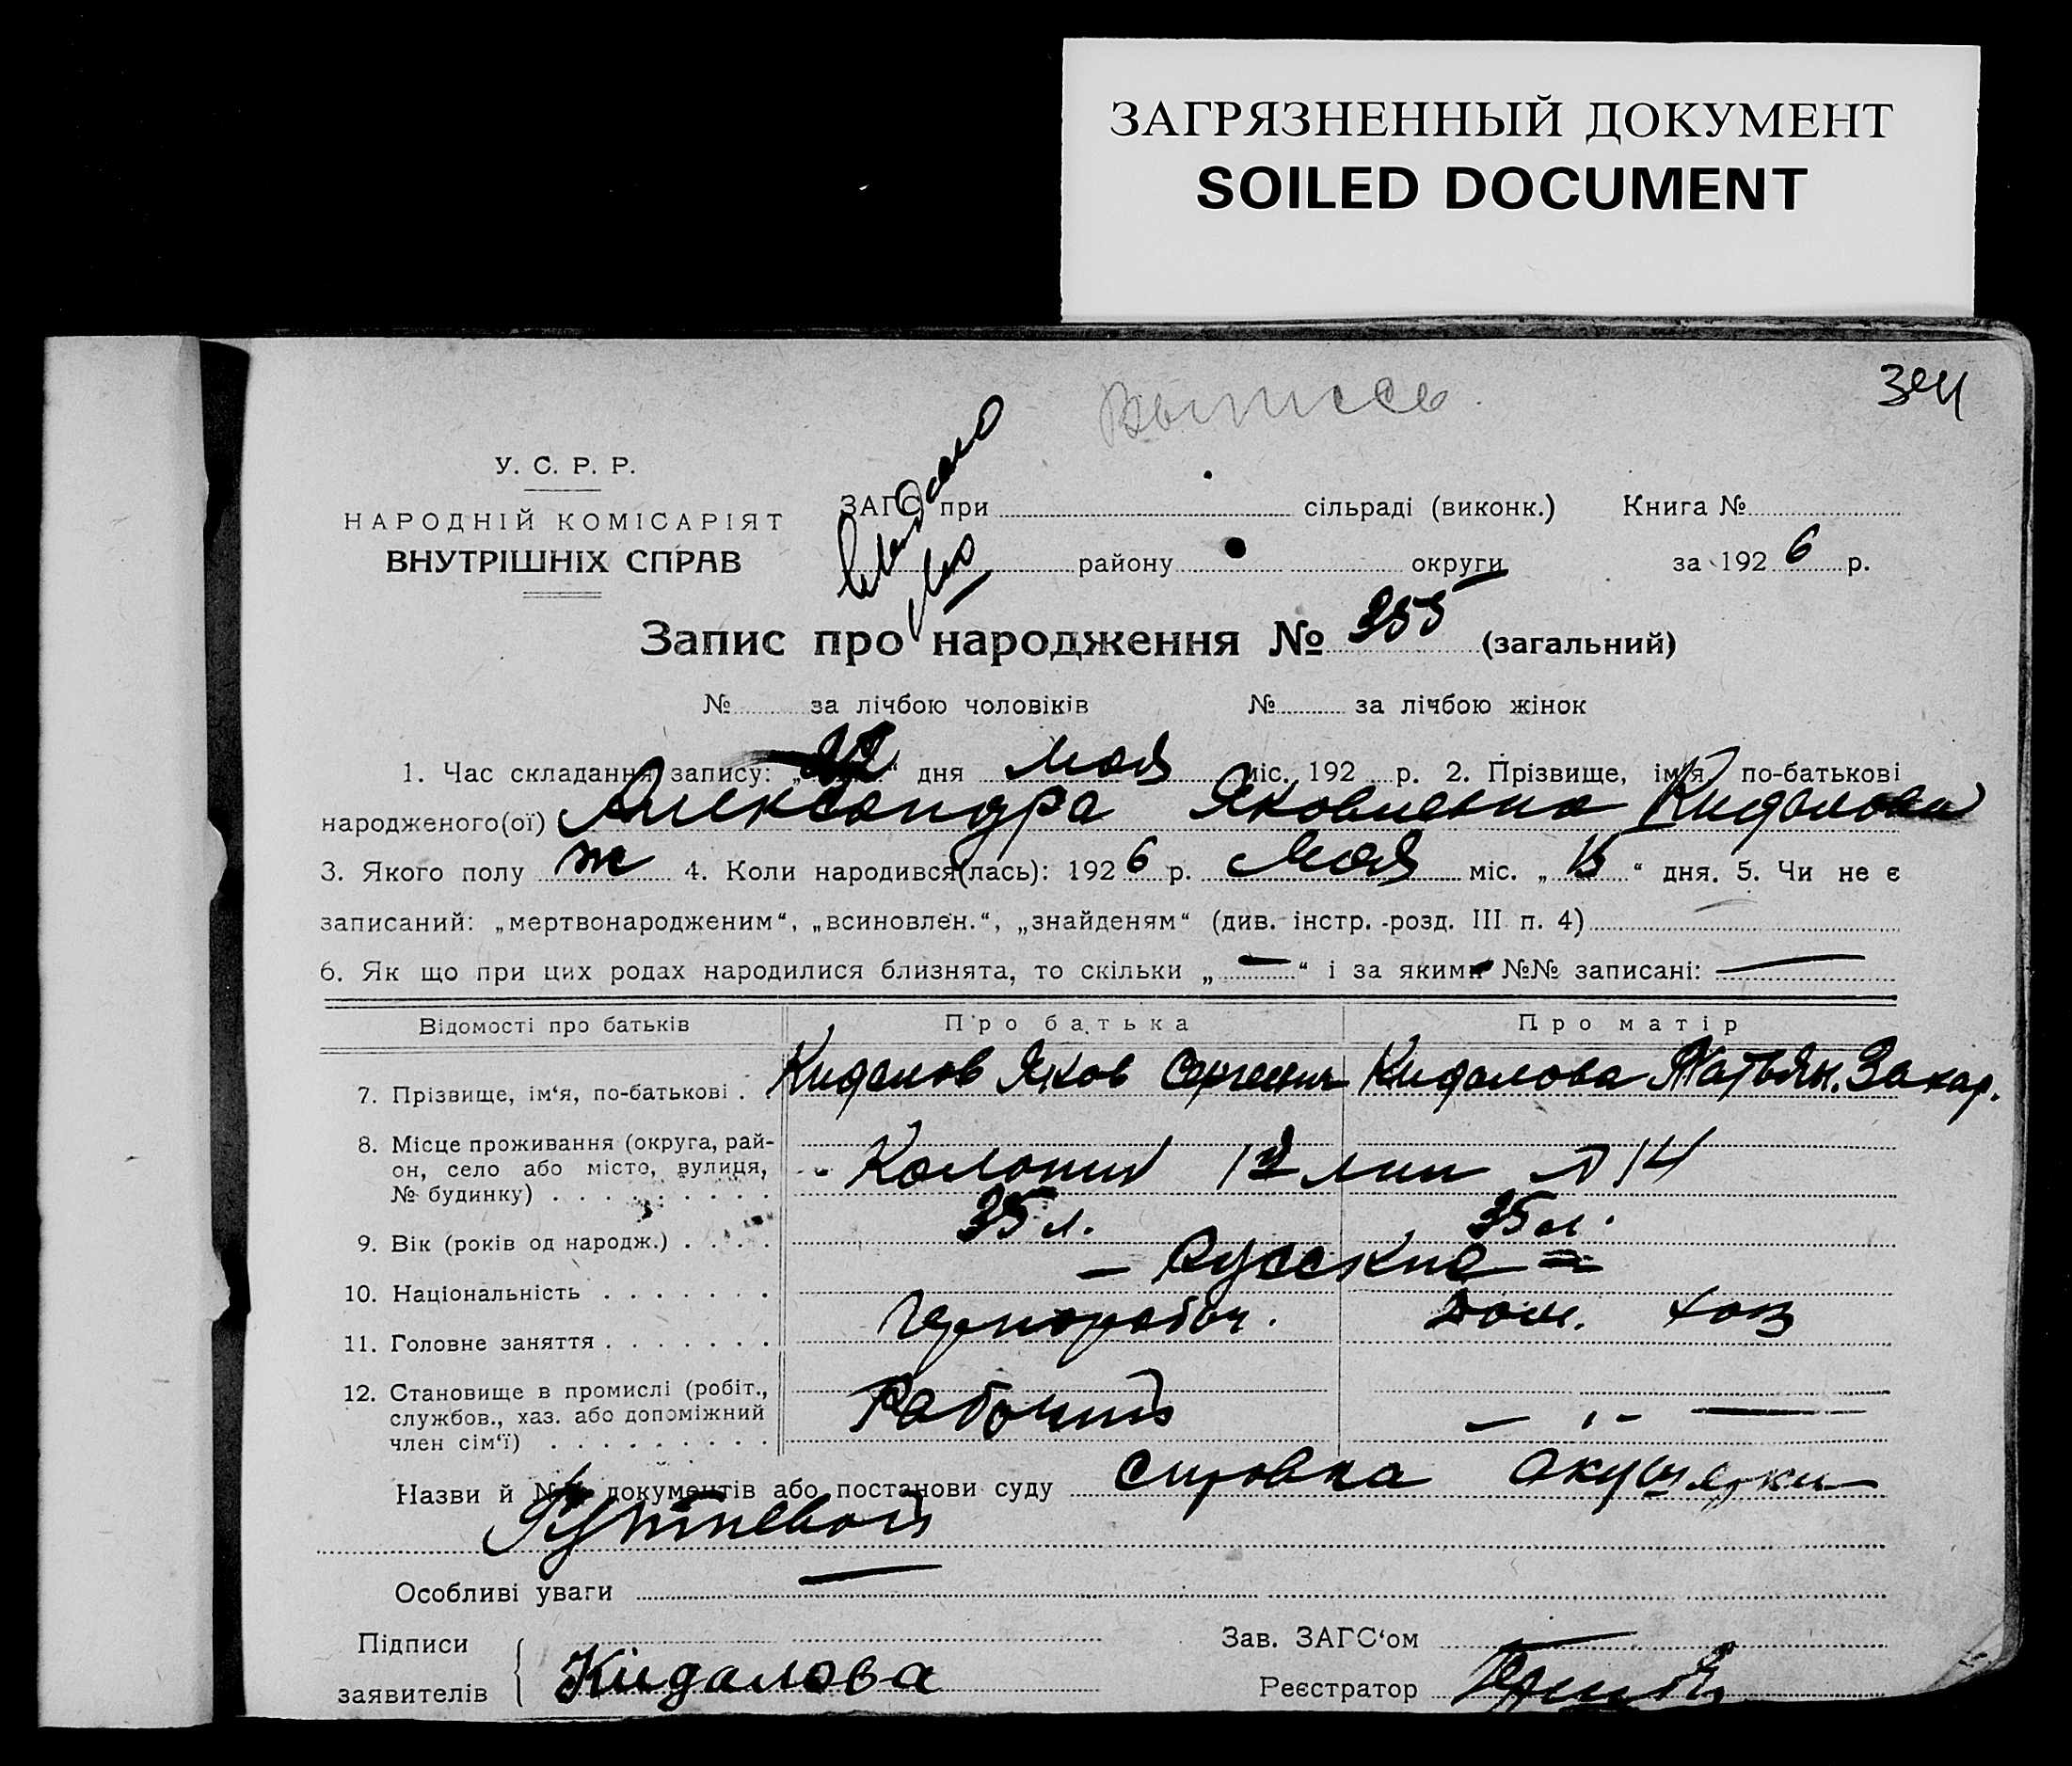 ЗАГРЯЗНЕННЫЙ ДОКУМЕНТ
SOILED DOCUMENT
Выпись
У. С. Р. Р.
НАРОДНІЙ КОМІСАРІЯТ
ВНУТРІШНІХ СПРАВ
ЗАГС при сільраді (виконк.) Книга №
району округи за 1926 р.
Запис про народження № 355 (загальний)
№ за лічбою чоловіків № за лічбою жінок
1. Час складання запису: „ “ дня мая міс. 192 р. 2. Прізвище, ім'я, по-батькові
народженого(ої) Александра Яковлевна Кидалова
3. Якого полу ж 4. Коли народився(лась): 1926 р. мая міс. „15“ дня. 5. Чи не є
записаний: „мертвонародженим“, „всиновлен.“, „знайденям“ (див. інстр. -розд. III п. 4)
6. Як що при цих родах народилися близнята, то скільки „—“ і за якими №№ записані: —
Відомості про батьків Про батька Про матір
7. Прізвище, ім'я, по-батькові . Кидалов Яков Сергеевич Кидалова Татьян. Захар.
8. Місце проживання (округа, рай-
он, село або місто, вулиця, Колония 12 лин 14
№ будинку) . . . . . . . . .
9. Вік (років од народж.) . . . . 35 л. 35 л.
10. Національність . . . . . . . — Русские =
11. Головне заняття . . . . . . . Чернорабоч. Дом. хоз
12. Становище в промислі (робіт.,
службов., хаз. або допоміжний Рабочий — „ —
член сім'ї) . . . . . . . . .
Назви й №№ документів або постанови суду справка акушерки
Особливі уваги —
Підписи Зав. ЗАГС'ом —
заявителів Кидалова Реєстратор